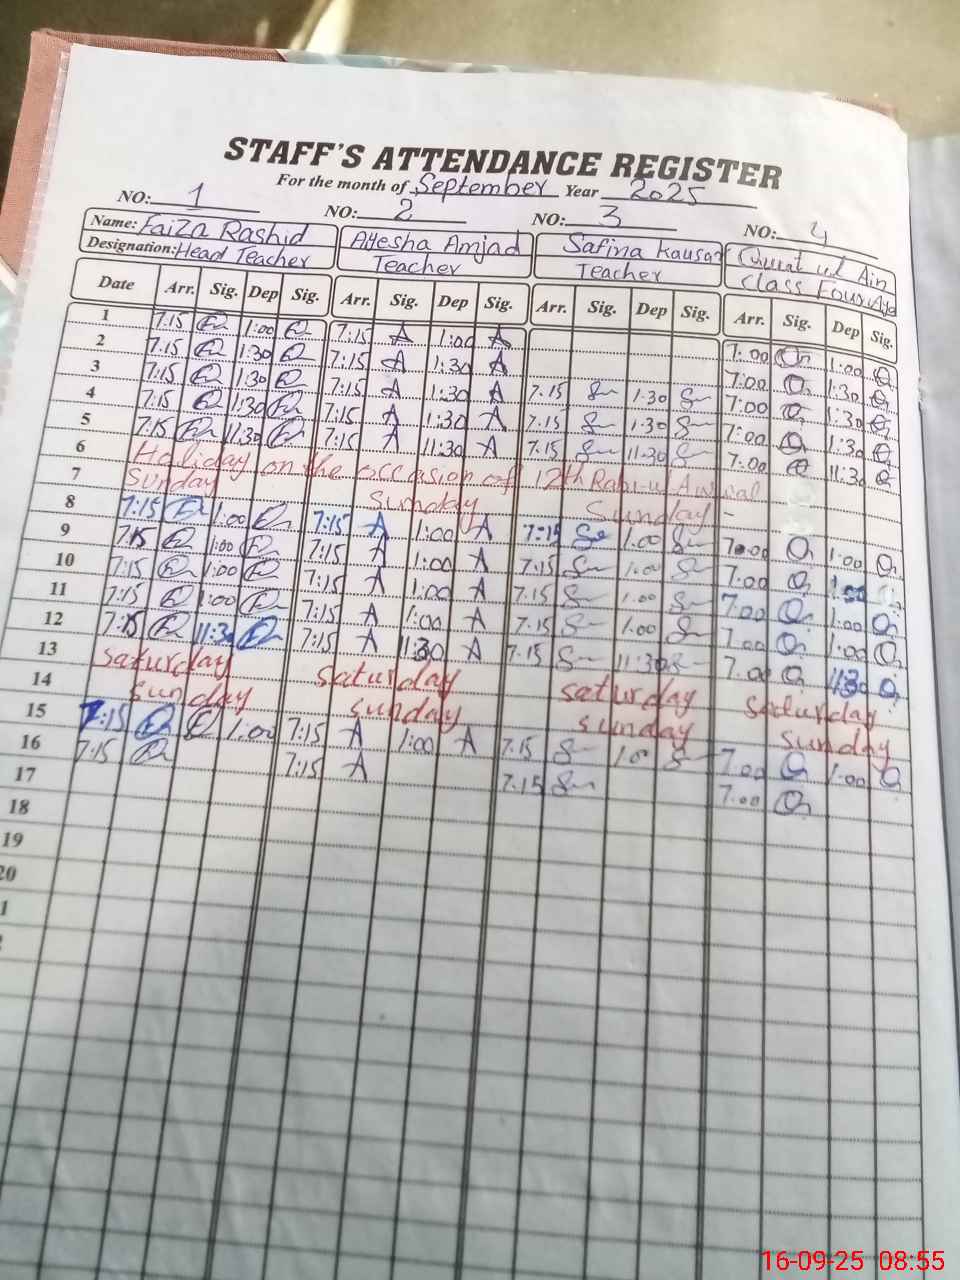 STAFF'S ATTENDANCE REGISTER
For the month of September Year 2025
NO: 1 NO: 2 NO: 3 NO: 4
Name: Faiza Rashid Ayesha Amjad Safina Kausar Qurat ul Ain
Designation: Head Teacher Teacher Teacher Class Four
Date Arr. Sig. Dep Sig. Arr. Sig. Dep Sig. Arr. Sig. Dep Sig. Arr. Sig. Dep Sig.
1 7:15 1:00 7:15 A 1:00 A 7:00 1:00
2 7:15 1:30 7:15 A 1:30 A 7:00 1:30
3 7:15 1:30 7:15 A 1:30 A 7.15 1:30 7:00 1:30
4 7:15 1:30 7:15 A 1:30 A 7.15 1:30 7:00 1:30
5 7:15 11:30 7:15 A 11:30 A 7.15 11:30 7:00 11:30
6 Holiday on the occasion of 12th Rabi-ul Awwal
7 Sunday Sunday Sunday -
8 7:15 1:00 7:15 A 1:00 A 7:15 1:00 7:00 1:00
9 7:15 1:00 7:15 A 1:00 A 7:15 1:00 7:00 1:00
10 7:15 1:00 7:15 A 1:00 A 7.15 1:00 7:00 1:00
11 7:15 1:00 7:15 A 1:00 A 7.15 1.00 7.00 1:00
12 7:15 11:30 7:15 A 11:30 A 7.15 11:30 7.00 11:30
13 saturday saturday saturday saturday
14 sunday sunday sunday sunday
15 7:15 1:00 7:15 A 1:00 A 7.15 1.00 7.00 1:00
16 7:15 7:15 A 7.15 7.00
17
18
19
20
16-09-25 08:55